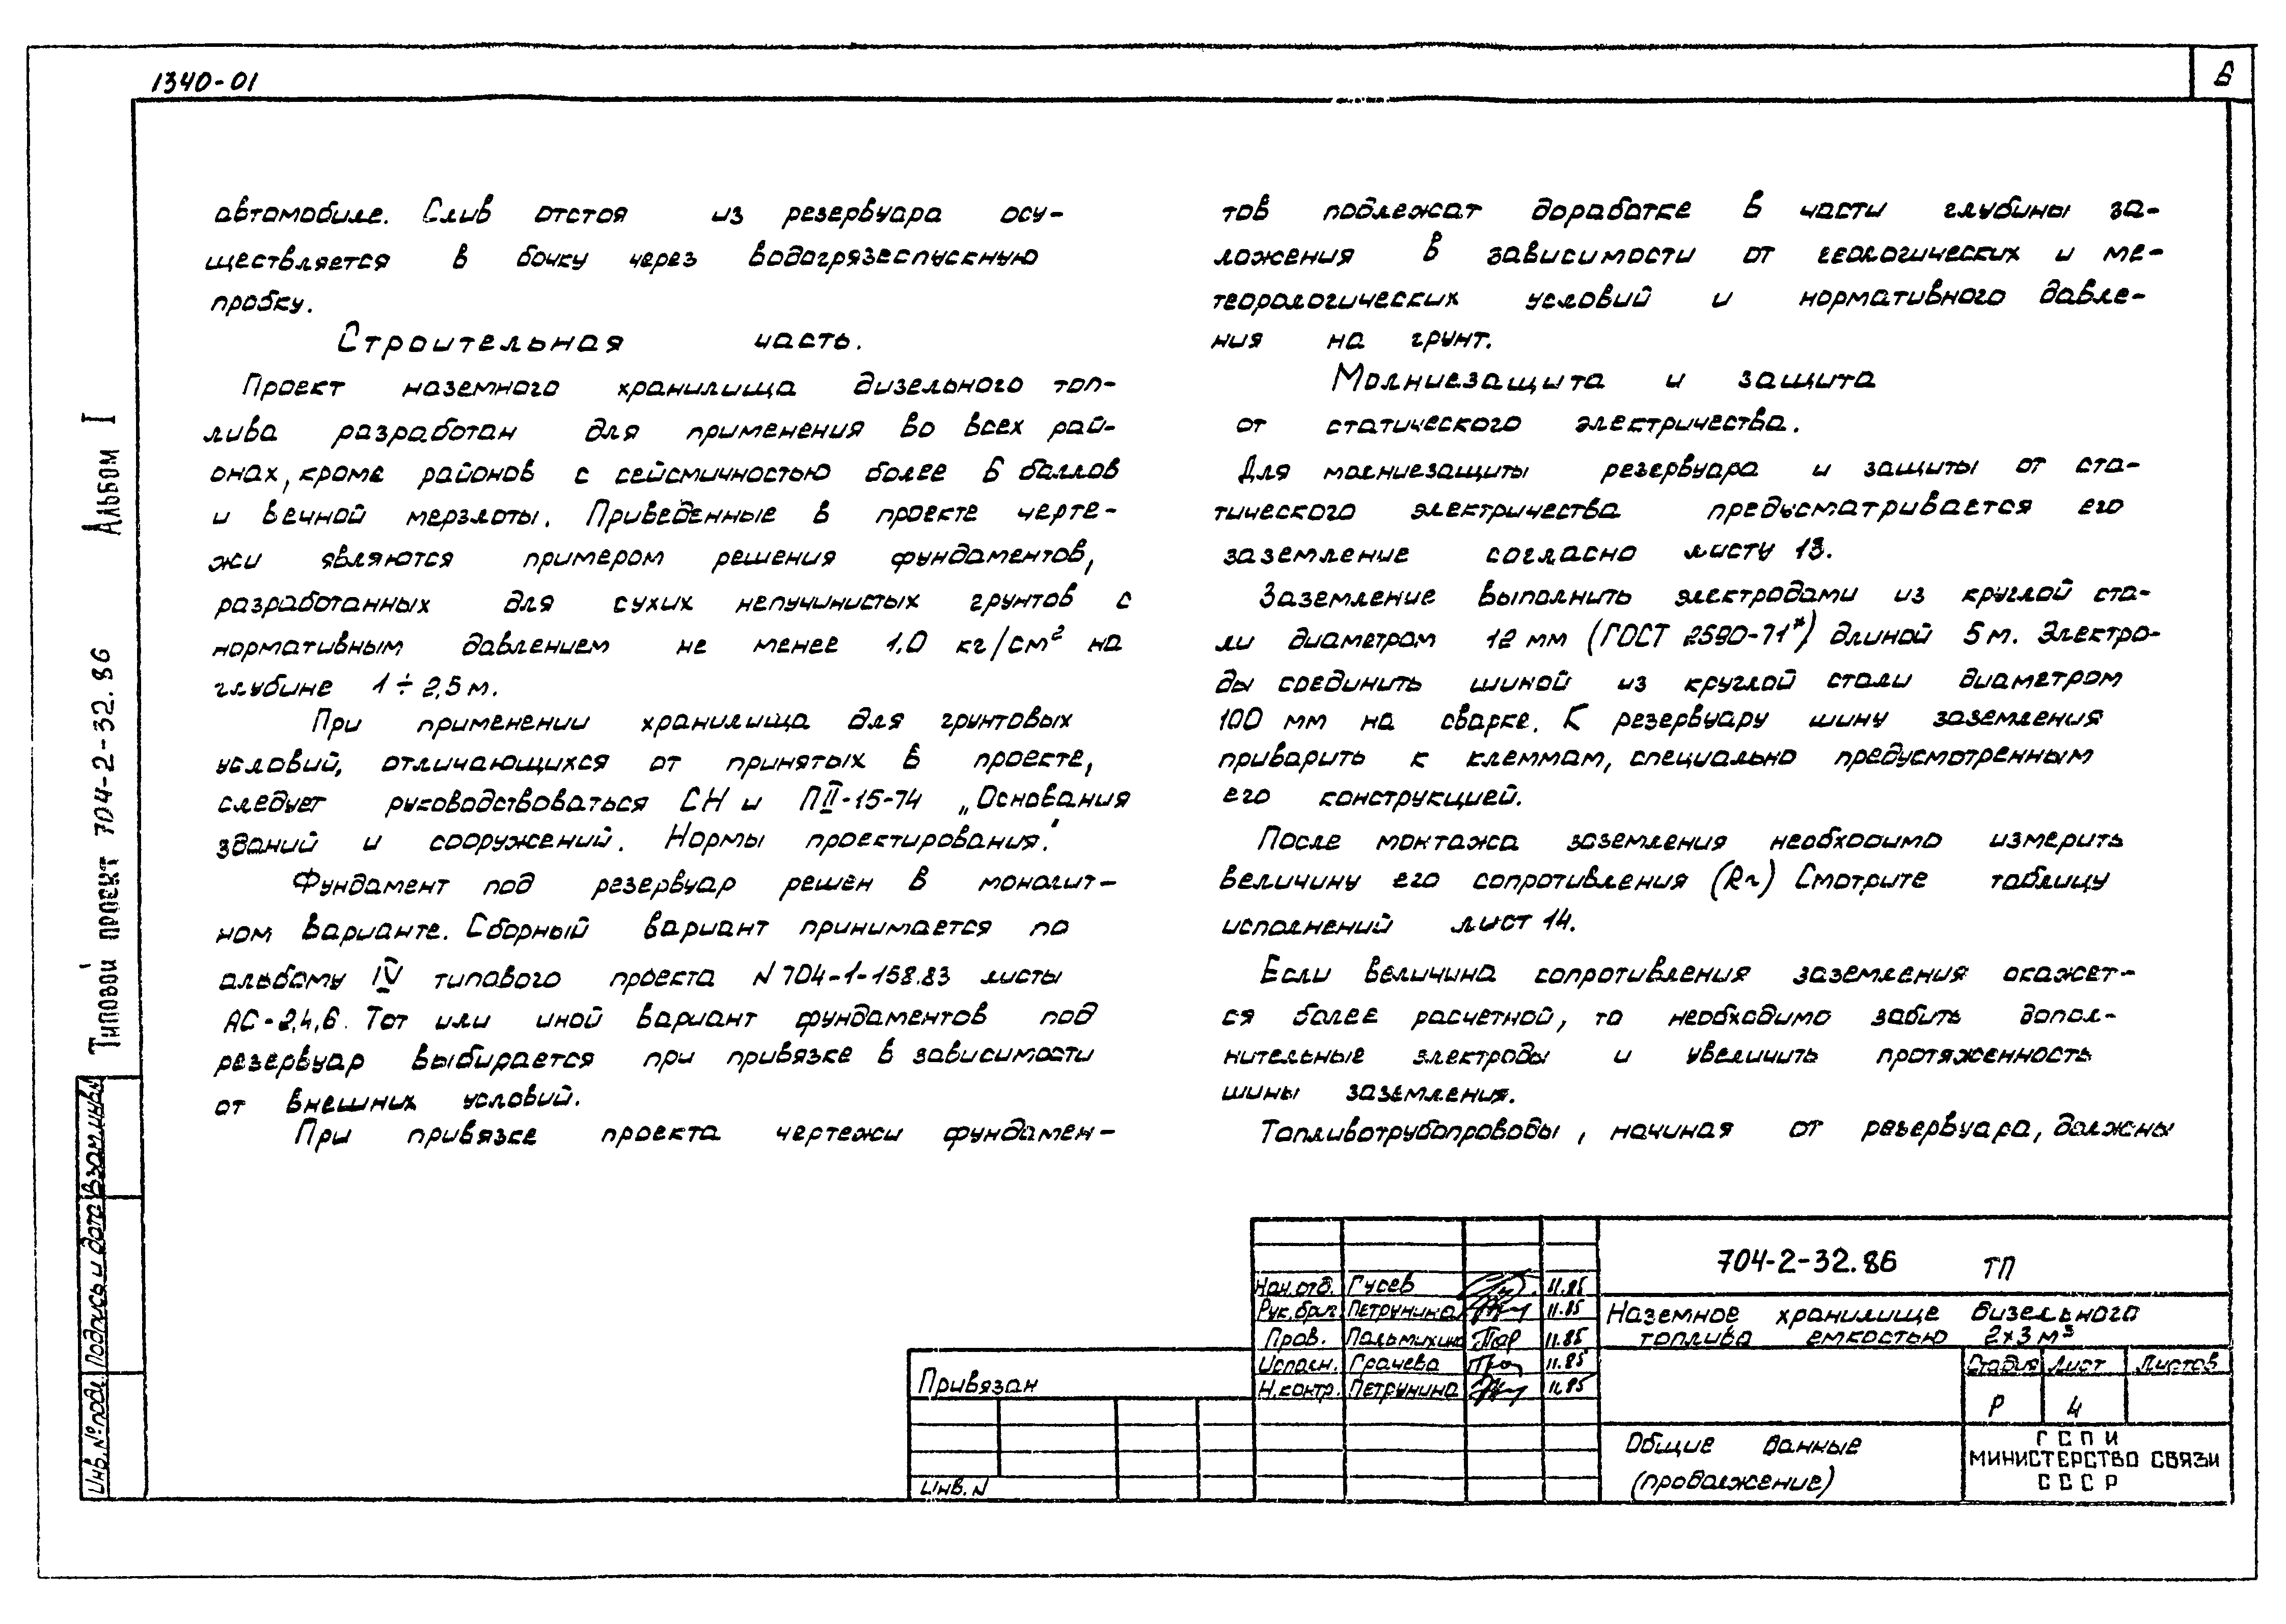 1340-01
6
автомобиле. Слив отстоя из резервуара осу-
ществляется в бочку через водогрязеспускную
пробку.
Строительная часть.
Проект наземного хранилища дизельного топ-
лива разработан для применения во всех рай-
онах, кроме районов с сейсмичностью более 6 баллов
и вечной мерзлоты. Приведенные в проекте черте-
жи являются примером решения фундаментов,
разработанных для сухих непучинистых грунтов с
нормативным давлением не менее 1.0 кг/см² на
глубине 1÷2,5 м.
При применении хранилища для грунтовых
условий, отличающихся от принятых в проекте,
следует руководствоваться СН и П II-15-74 „Основания
зданий и сооружений. Нормы проектирования".
Фундамент под резервуар решен в монолит-
ном варианте. Сборный вариант принимается по
альбому IV типового проекта N 704-1-158.83 листы
АС-2,4,6. Тот или иной вариант фундаментов под
резервуар выбирается при привязке в зависимости
от внешних условий.
При привязке проекта чертежи фундамен-
тов подлежат доработке в части глубины за-
ложения в зависимости от геологических и ме-
теорологических условий и нормативного давле-
ния на грунт.
Молниезащита и защита
от статического электричества.
Для молниезащиты резервуара и защиты от ста-
тического электричества предусматривается его
заземление согласно листу 13.
Заземление выполнить электродами из круглой ста-
ли диаметром 12 мм (ГОСТ 2590-71*) длиной 5 м. Электро-
ды соединить шиной из круглой стали диаметром
100 мм на сварке. К резервуару шину заземления
приварить к клеммам, специально предусмотренным
его конструкцией.
После монтажа заземления необходимо измерить
величину его сопротивления (Rг) Смотрите таблицу
исполнений лист 14.
Если величина сопротивления заземления окажет-
ся более расчетной, то необходимо забить допол-
нительные электроды и увеличить протяженность
шины заземления.
Топливотрубопроводы, начиная от резервуара, должны
Типовой проект 704-2-32.86 Альбом I
Инв.№ подл. Подпись и дата Взам.инв.№
Привязан
Инв. N
Нач. отд. Гусев 11.85
Рук. бриг. Петрунина 11.85
Пров. 11.85
Исполн. Грачева 11.85
Н.контр. Петрунина 11.85
704-2-32.86 ТП
Наземное хранилище дизельного
топлива емкостью 2×3 м³
Стадия Лист Листов
Р 4
Общие данные
(продолжение)
ГСПИ
МИНИСТЕРСТВО СВЯЗИ
СССР